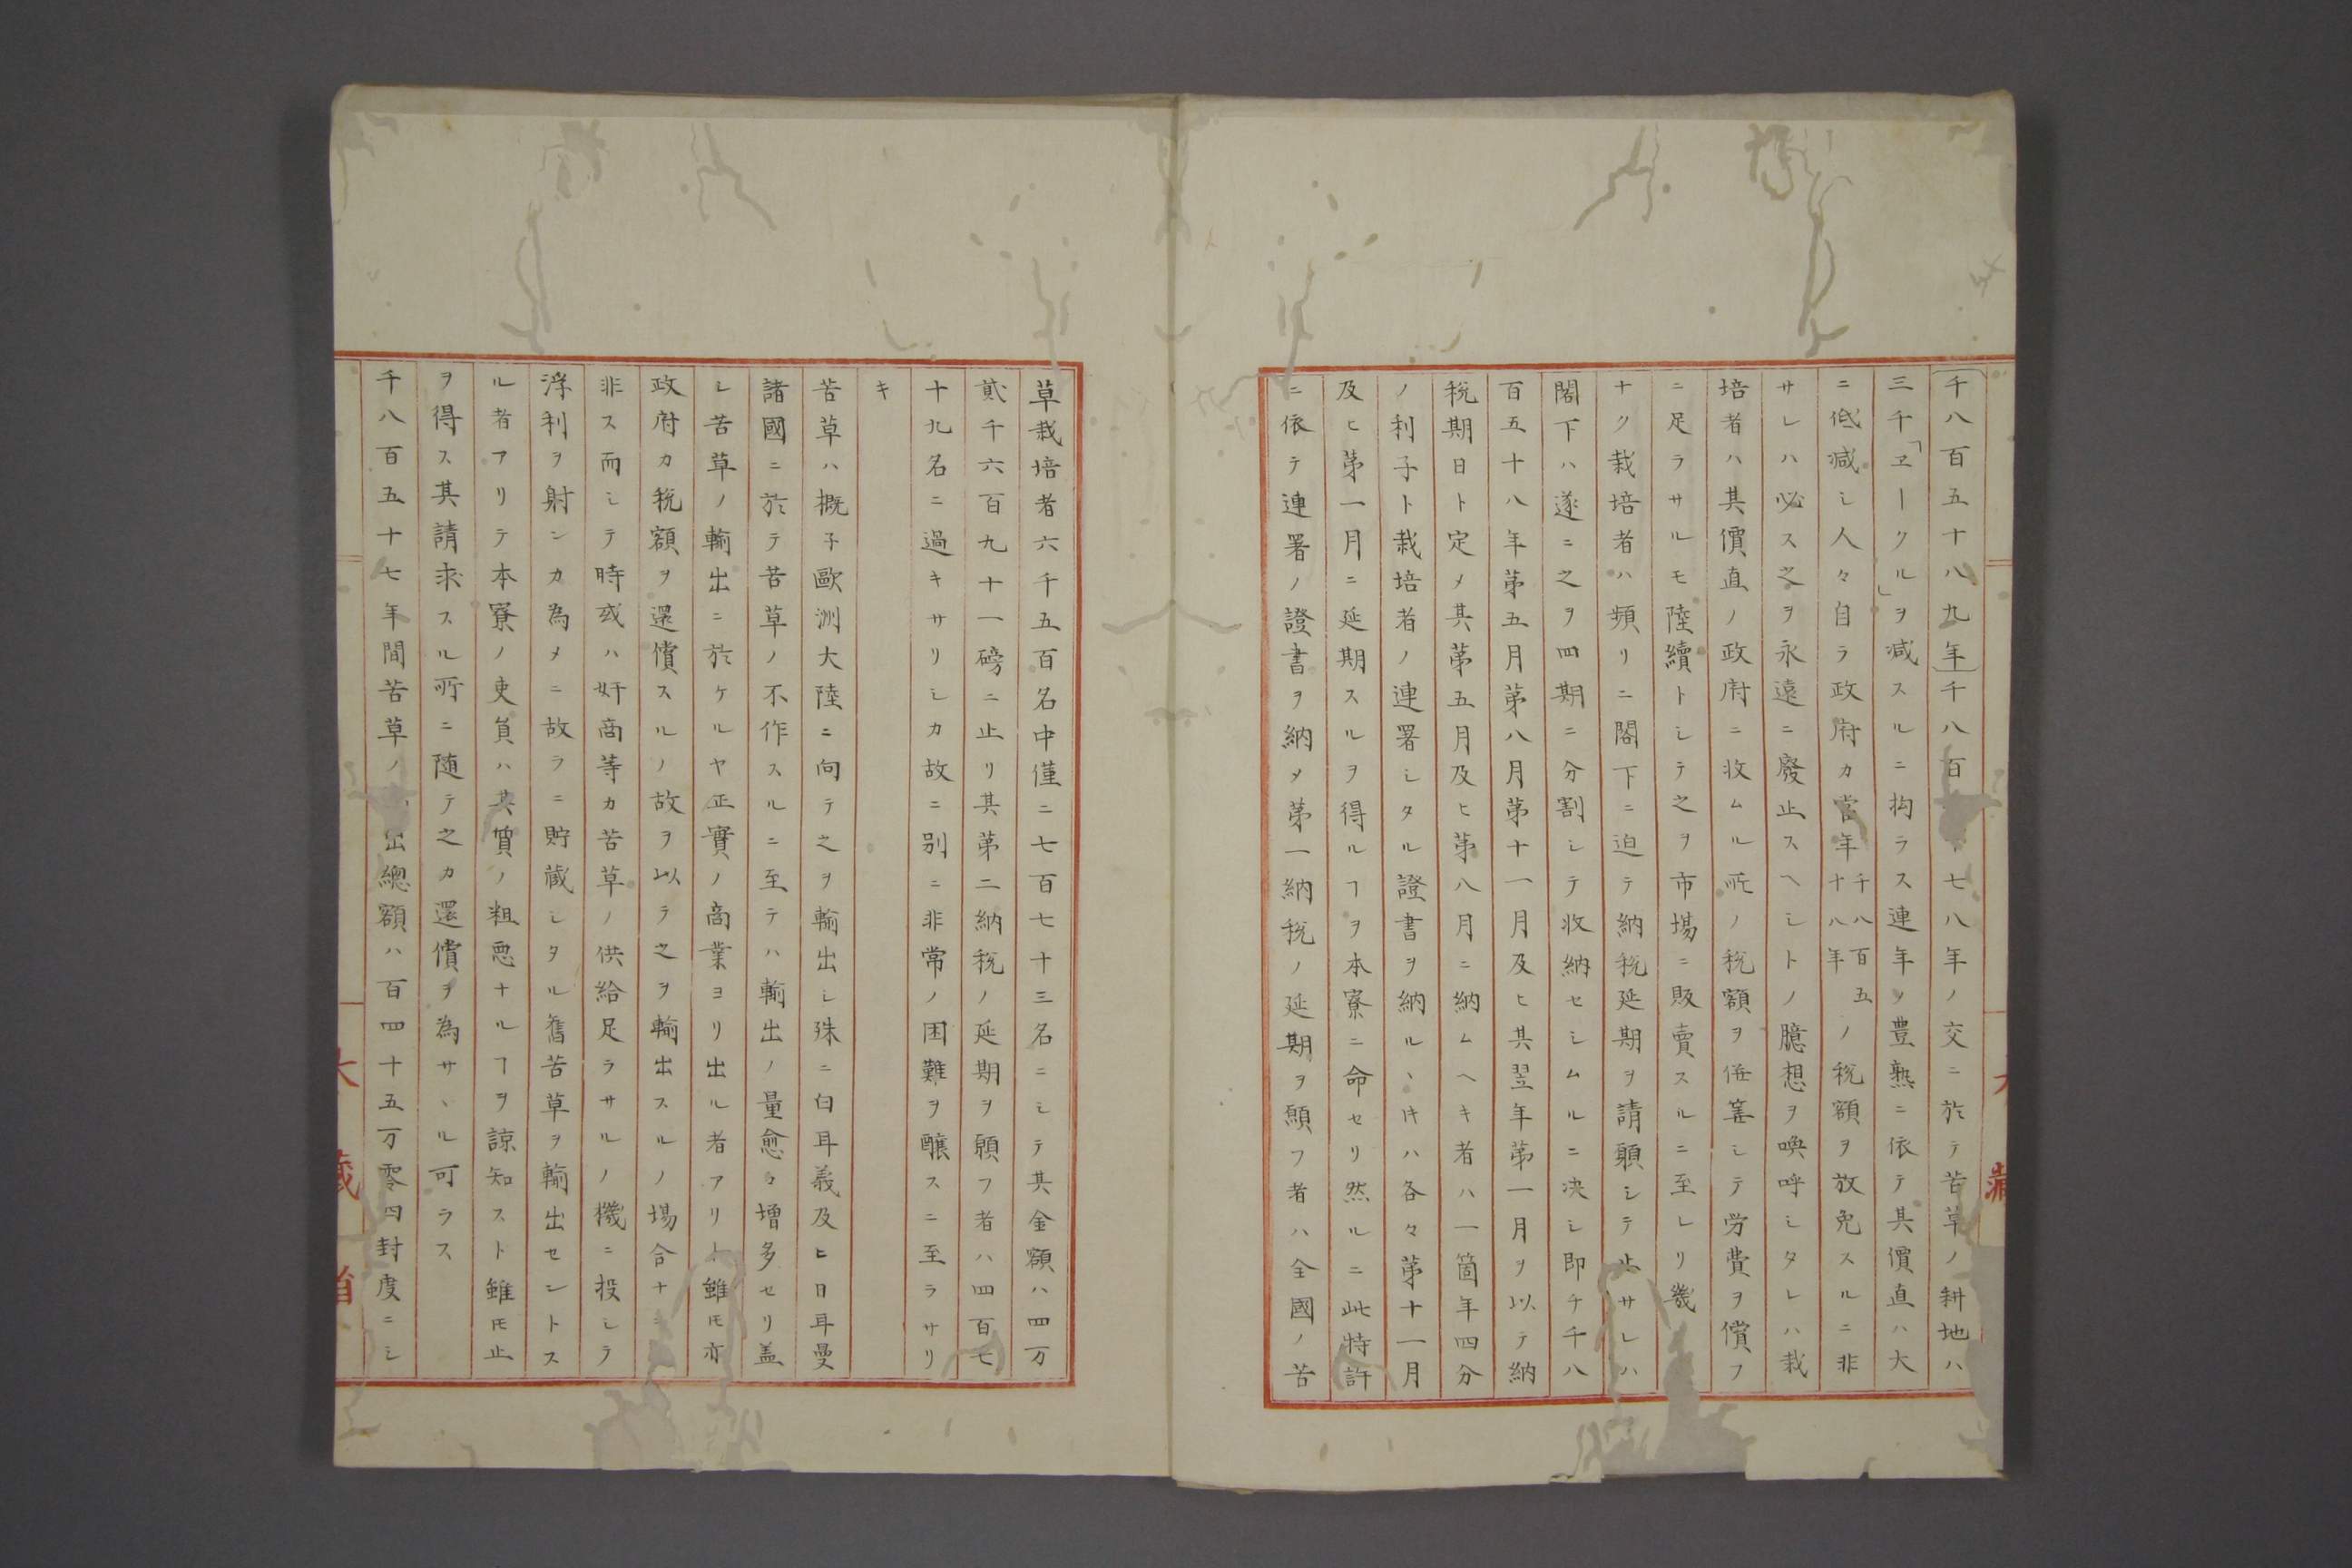 千八百五十八九年千八百七八年ノ交ニ於テ苦草ノ耕地ハ
三千「ヱークル」ヲ减スルニ抅ラス連年ノ豊熟ニ依テ其價直ハ大
ニ低减シ人々自ラ政府カ當年千八百五十八年ノ税額ヲ放免スルニ非
サレハ必ス之ヲ永遠ニ廢止スヘシトノ臆想ヲ喚呼シタレハ栽
培者ハ其價直ノ政府ニ收ムル所ノ税額ヲ併筭シテ労費ヲ償フ
ニ足ラサルモ陸續トシテ之ヲ市場ニ販賣スルニ至レリ幾
ナク栽培者ハ頻リニ閣下ニ迫テ納税延期ヲ請願シテ止サレハ
閣下ハ遂ニ之ヲ四期ニ分割シテ收納セシムルニ决シ即チ千八
百五十八年第五月第八月第十一月及ヒ其翌年第一月ヲ以テ納
税期日ト定メ其第五月及ヒ第八月ニ納ムヘキ者ハ一箇年四分
ノ利子ト栽培者ノ連署シタル證書ヲ納ルヽ𪜈ハ各々第十一月
及ヒ第一月ニ延期スルヲ得ルヿヲ本寮ニ命セリ然ルニ此特許
ニ依テ連署ノ證書ヲ納メ第一納税ノ延期ヲ願フ者ハ全國ノ苦
草栽培者六千五百名中僅ニ七百七十三名ニシテ其金額ハ四万
貳千六百九十一磅ニ止リ其第二納税ノ延期ヲ願フ者ハ四百七
十九名ニ過キサリシカ故ニ别ニ非常ノ困難ヲ釀スニ至ラサリ
キ
苦草ハ概子歐洲大陸ニ向テ之ヲ輸出シ殊ニ白耳義及ヒ日耳曼
諸國ニ於テ苦草ノ不作スルニ至テハ輸出ノ量愈々增多セリ盖
シ苦草ノ輸出ニ於ケルヤ正實ノ商業ヨリ出ル者アリト雖𪜈亦
政府カ税額ヲ還償スルノ故ヲ以テ之ヲ輸出スルノ場合ナ
非ス而シテ時或ハ奸商等カ苦草ノ供給足ラサルノ機ニ投シテ
浮利ヲ射ンカ為メニ故ラニ貯藏シタル舊苦草ヲ輸出セントス
ル者アリテ本寮ノ吏員ハ其質ノ粗悪ナルヿヲ諒知スト雖𪜈止
ヲ得ス其請求スル所ニ随テ之カ還償ヲ為サヽル可ラス
千八百五十七年間苦草ノ出總額ハ百四十五万零四封度ニシ
大藏省
藏